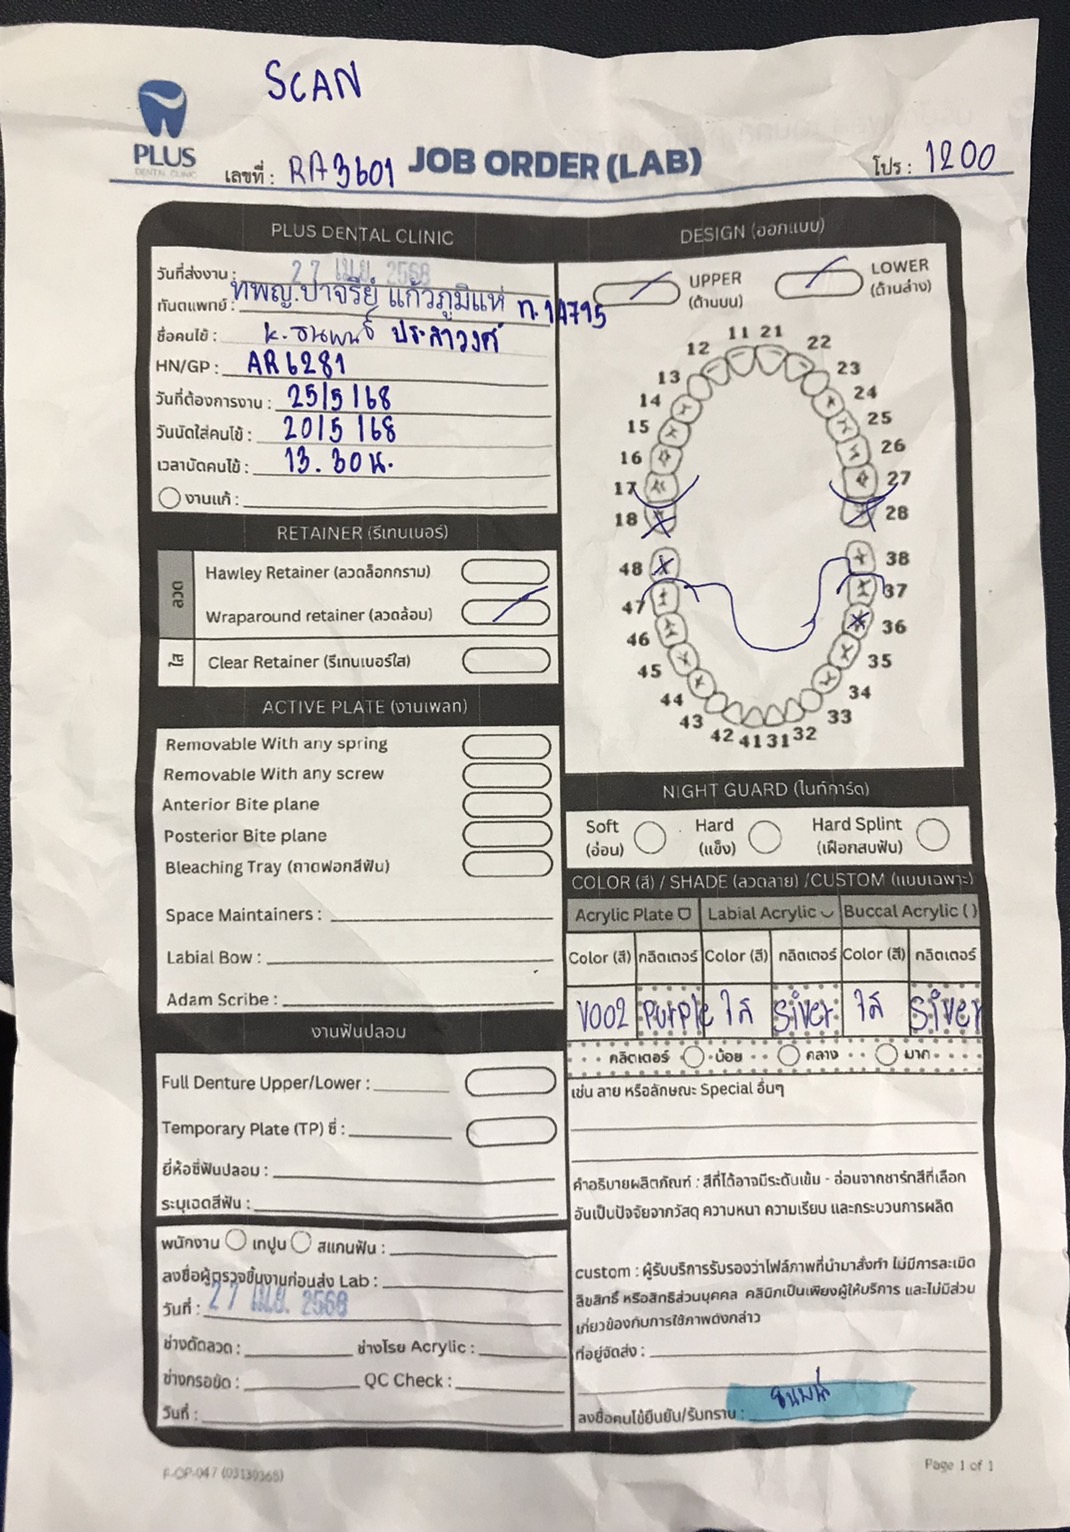 SCAN
PLUS
DENTAL CLINIC
เลขที่ : RA3601
JOB ORDER (LAB)
โปร : 1200
PLUS DENTAL CLINIC
วันที่ส่งงาน : 27 เม.ย. 2568
ทันตแพทย์ : ทพญ.ปาจรีย์ แก้วภูมิแห่ ท.14715
ชื่อคนไข้ : k. ธนพนธ์ ประสาวงศ์
HN/GP : AR6281
วันที่ต้องการงาน : 25/5/68
วันนัดใส่คนไข้ : 20/5/68
เวลานัดคนไข้ : 13.30น.
งานแก้ :
RETAINER (รีเทนเนอร์)
ลวด
Hawley Retainer (ลวดล็อกกราม)
Wraparound retainer (ลวดล้อม)
ใส
Clear Retainer (รีเทนเนอร์ใส)
ACTIVE PLATE (งานเพลท)
Removable With any spring
Removable With any screw
Anterior Bite plane
Posterior Bite plane
Bleaching Tray (ถาดฟอกสีฟัน)
Space Maintainers :
Labial Bow :
Adam Scribe :
งานฟันปลอม
Full Denture Upper/Lower :
Temporary Plate (TP) ซี่ :
ยี่ห้อซี่ฟันปลอม :
ระบุเฉดสีฟัน :
พนักงาน เทปูน สแกนฟัน :
ลงชื่อผู้ตรวจชิ้นงานก่อนส่ง Lab :
วันที่ : 27 เม.ย. 2568
ช่างดัดลวด : ช่างโรย Acrylic :
ช่างกรอขัด : QC Check :
วันที่ :
DESIGN (ออกแบบ)
UPPER
(ด้านบน)
LOWER
(ด้านล่าง)
11 21
12 22
13 23
14 24
15 25
16 26
17 27
18 28
48 38
47 37
46 36
45 35
44 34
43 33
42 41 31 32
NIGHT GUARD (ไนท์การ์ด)
Soft
(อ่อน)
Hard
(แข็ง)
Hard Splint
(เฝือกสบฟัน)
COLOR (สี) / SHADE (ลวดลาย) /CUSTOM (แบบเฉพาะ)
Acrylic Plate Labial Acrylic Buccal Acrylic ( )
Color (สี) กลิตเตอร์ Color (สี) กลิตเตอร์ Color (สี) กลิตเตอร์
V002 Purple ใส Siver ใส Siver
กลิตเตอร์ น้อย กลาง มาก
เช่น ลาย หรือลักษณะ Special อื่นๆ
คำอธิบายผลิตภัณฑ์ : สีที่ได้อาจมีระดับเข้ม - อ่อนจากชาร์ทสีที่เลือก
อันเป็นปัจจัยจากวัสดุ ความหนา ความเรียบ และกระบวนการผลิต
custom : ผู้รับบริการรับรองว่าไฟล์ภาพที่นำมาสั่งทำ ไม่มีการละเมิด
ลิขสิทธิ์ หรือสิทธิส่วนบุคคล คลินิกเป็นเพียงผู้ให้บริการ และไม่มีส่วน
เกี่ยวข้องกับการใช้ภาพดังกล่าว
ที่อยู่จัดส่ง :
ลงชื่อคนไข้ยืนยัน/รับทราบ : ธนพนธ์
F-OP-047 (03130365)
Page 1 of 1